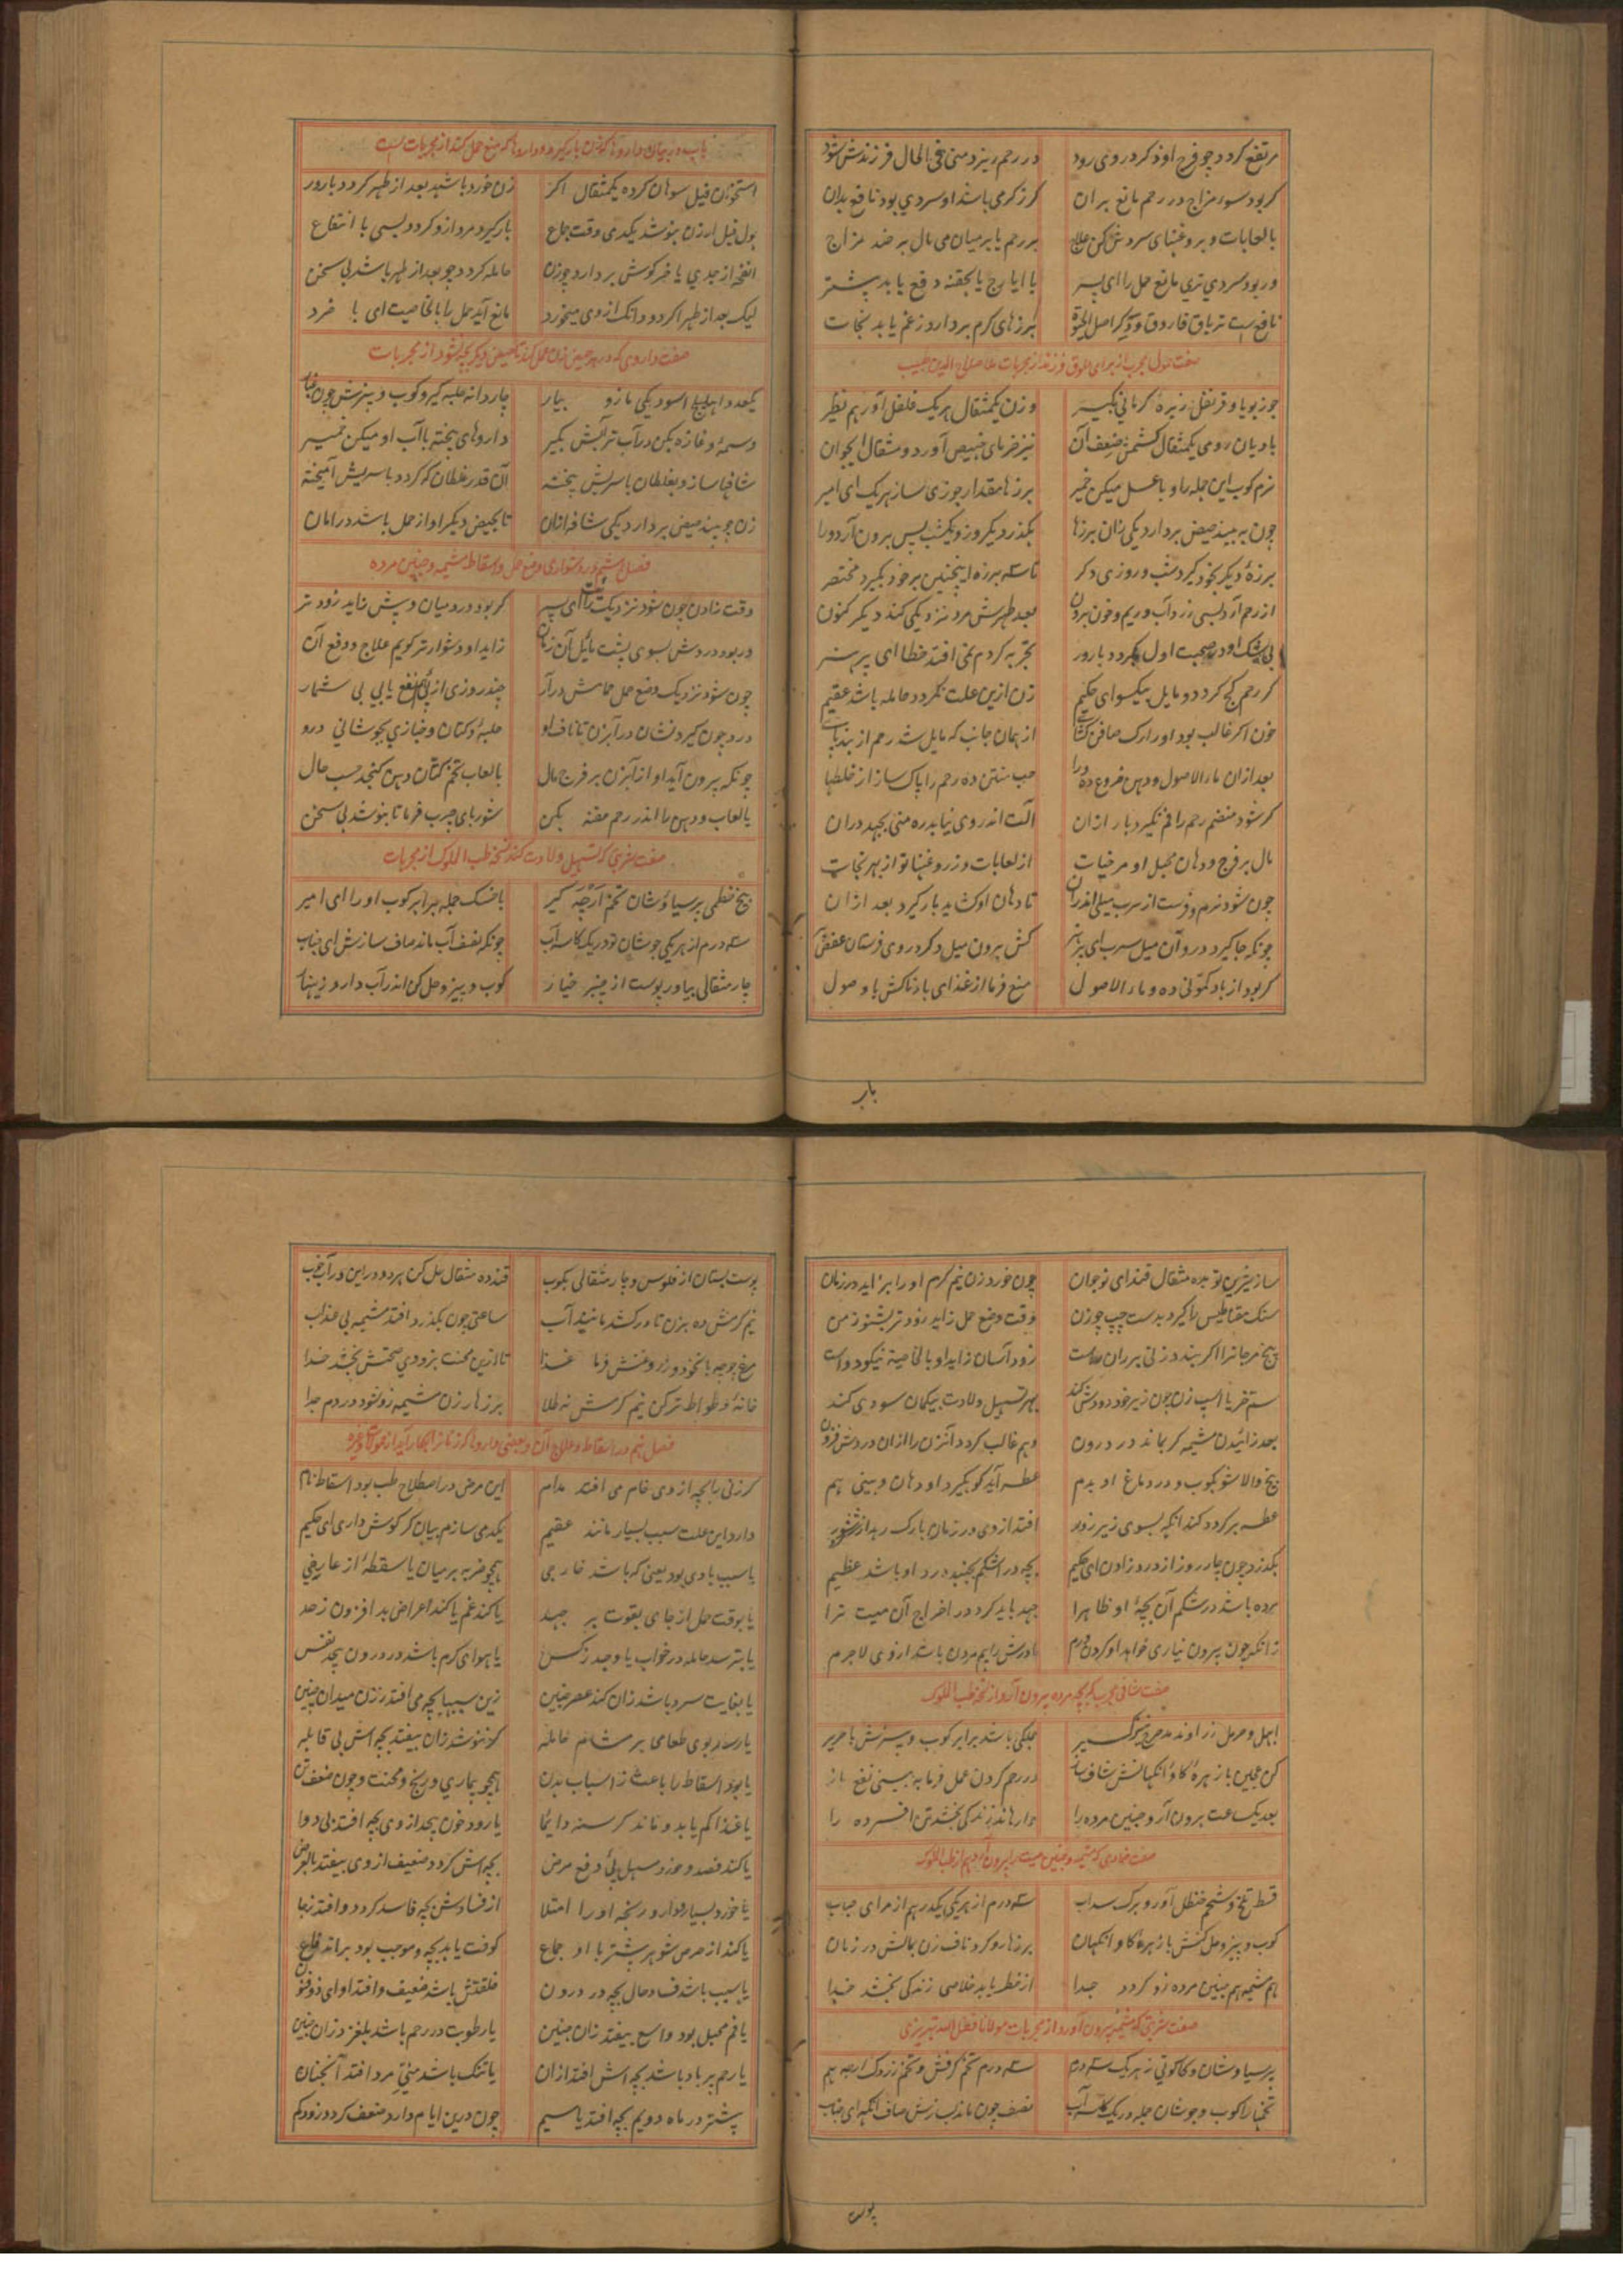 مرتفع کردد چو فرج او ذکر در وی رود در رحم ریزد منی فی الحال فرزندش شود
کر بود سوء مزاج در رحم مانع بر ان کر ز کرمی باشد او سردی بود نافع بدان
با لعابات و بروغنهای سردش کن علاج بر رحم یا بر میان می مال بر ضد مزاج
ور بود سردی تری مانع حمل را ای پسر یا ایارج یا بحقنه دفع باید پیشتر
نافع است تریاق فاروق و دکر اصل الحیوة برزهای کرم بردارد ز غم یابد نجات
صفت حمول مجرب از برای علوق فرزند از مجربات ملا صلاح الدین طبیب
جوز بویا و قرنفل زیره کرمانی بکیر وزن یکمثقال هر یک فلفل آور هم نظیر
بادیان رومی یکمثقال کشمش ضعف آن نیز خرمای خبیص آور دو مثقال ایجوان
نرم کوب این جمله را و با عسل میکن خمیر برزها مقدار جوزی ساز هر یک ای امیر
چون به بیند حیض بردارد یکی زان برزها بکذرد یکروز و یکشب پس برون آرد ورا
برزهٔ دیکر بخود کیرد شب و روزی دکر تا سه برزه اینچنین بر خود بکیرد مختصر
از رحم آرد بسی زرداب و ریم و خون برون بعد طهرش مرد نزدیکی کند دیکر کنون
بی شک او در صحبت اول بکردد بارور تجربه کردم نمی افتد خطا ای پر هنر
کر رحم کج کردد و مایل بیکسو ای حکیم زن ازین علت نکردد حامله باشد عقیم
خون اکر غالب بود او را رک صافن کشا از همان جانب که مایل شد رحم از بند پا
بعد ازان ماء الاصول و دهن خروع ده ورا حب منتن ده رحم را پاک ساز از خلطها
کر شود منضم رحم را فم نکیرد بار ازان آلت اندر وی نیابد ره منی بجهد دران
مال بر فرج و دهان مهبل او مرخیات از لعابات و ز روغنها تو از بهر نجات
چون شود نرم و فرست از سرب میلی اندران تا دهان او کشاید بار کیرد بعد ازان
چونکه جا کیرد درو آن میل سرب ای پر هنر کش برون میل و دکر در وی فرست
کر بود از باد کمونی ده و ماء الاصول منع فرما از غذای بادناکش با وصول
باب
باب در بیان داروها که زن بار کیرد و داروها که منع حمل کند از مجربات است
استخوان فیل سوهان کرده یکمثقال اکر زن خورد باشد بعد از طهر کردد بارور
بول فیل ار زن بنوشد یکدمی وقت جماع بار کیرد مرد ازو کردد بسی با انتفاع
انفحه از جدی یا خرکوش بردارد چو زن حامله کردد چو بعد از طهر باشد بی سخن
لیک بعد از طهر اکر دو دانک از وی میخورد مانع آید حمل را بالخاصیت ای با خرد
صفت داروی که در هر حیض زن حمل کند تا حیض دیکر بچه نشود از مجربات
یکعدد اهلیلج اسود یکی مازو بیار چار دانه حلبه کیر و کوب و بیزش چون غبار
وسمه و غازه بکن در آب تر آبش بکیر داروهای پخته با آب او میکن خمیر
شافها ساز و بغلطان با سریش پخته آن قدر غلطان که کردد با سریش آمیخته
زن چو بیند حیض بردارد یکی شافه ازان تا بحیض دیکر او از حمل باشد در امان
فصل هشتم در دشواری وضع حمل و اسقاط مشیمه و جنین مرده
وقت زادن چون شود نزدیک زن را ای پسر کر بود درد میان و پیش زاید زودتر
ور بود دردش بسوی پشت مایل آن زمان زاید او دشوارتر کویم علاج و دفع آن
چون شود نزدیک وضع حمل حمامش درآر چند روزی از پی نفع یابی بی شمار
درد چون کیرد نشان در آبزن تا ناف او حلبه و کتان و خبازی بجوشانی درو
چونکه بیرون آید او از آبزن بر فرج مال با لعاب تخم کتان دهن کنجد حسب حال
با لعاب و دهن را اندر رحم حقنه بکن شوربای چرب فرما تا بنوشد بی سخن
صفت شربتی که تسهیل ولادت کند نسخه طب الملوک از مجربات
بیخ خطمی پرسیاوشان تخم کیر با خسک جمله برابر کوب او را ای امیر
سه درم از هر یکی جوشان تو در یک کاسه آب چونکه نصف آب ماند صاف سازش ای جناب
چار مثقالی بیاور پوست از چنبر خیار کوب و بیز و حل کن اندر آب دارو زینهار
ساز شیرین تو بده مثقال قند ای نوجوان چون خورد زن نیم کرم او را بزاید در زمان
سنک مقناطیس را کیرد بدست چپ چو زن وقت وضع حمل زاید زودتر بشنو ز من
بیخ مرجانرا اکر بندد زنی بر ران راست زود آسان زاید او بالخاصیة نیکو دواست
سم خر یا اسپ زن چون زیر خود دودش کند بهر تسهیل ولادت بیکمان سودی کند
بعد زائیدن مشیمه کر بماند در درون وهم غالب کردد آنزن را ازان دردش فزون
بیخ والا شو بکوب و در دماغ او بدم عطسه آید کو بکیرد او دهان و بینی هم
عطسه بر کردد کند انکه بسوی زیر زور افتد از وی در زمان بارک رهد از شر و شور
بکذرد چون چار روز از درد زادن ای حکیم بچه در اشکم بجنبد درد او باشد عظیم
مرده باشد در شکم آن بچهٔ او ظاهرا جهد باید کرد در اخراج آن میت ترا
زانکه چون بیرون نیاری خواهد او کردن ورم مادرش را بیم مردن باشد از وی لاجرم
صفت شافی مجرب که بچه مرده بیرون آرد از نسخه طب الملوک
ابهل و حرمل زراوند مدحرج کیر جملکی باشد برابر کوب و بیزش با حریر
کن عجین با زهرهٔ کاو انکهانش شاف ساز در رحم کردن عمل فرما به بینی نفع باز
بعد یک ساعت برون آرد جنین مرده را وارهاند زندکی بخشد تن افسرده را
صفت ضمادی که مشیمه و جنین میت را بیرون آرد هم از طب الملوک
قسط تلخ و شحم حنظل آور و برک سداب سه درم از هر یکی یکدرهم از مرا ی جناب
کوب و بیز و حل کنش با زهرهٔ کاو انکهان بر زهار و کرد ناف زن بمالش در زمان
هم مشیمه هم جنین مرده زو کردد جدا از خطر یابد خلاصی زندکی بخشد خدا
صفت شربتی که مشیمه بیرون آورد از مجربات مولانا فضل الله تبریزی
پرسیاوشان و کاکوتی ز هر یک سه درم سه درم تخم کرفش و تخم زردک ار چه هم
تخمها را کوب و جوشان جمله در یک کاسه آب نصف چون ماند بسازش صاف انکه ای جناب
پوست
پوست بستان از فلوس و چار مثقالی بکوب قند ده مثقال حل کن هر دو در این در آب خوب
نیم کرمش ده بزن تا در کشد مانند آب ساعتی چون بکذرد افتد مشیمه بی عذاب
مرغ جوجه با نخود و زروغنش فرما غذا تا ازین محنت بزودی صحتش بخشد خدا
خانهٔ وطواط تر کن نیم کرمش نه طلا بر زهار زن مشیمه زو شود در دم جدا
فصل نهم در اسقاط و علاج آن و بعضی داروها که زنانرا بکار آید از حمول و غیره
کر زنی را بچه از وی خام می افتد مدام این مرض در اصطلاح طب بود اسقاط نام
دارد این علت سبب بسیار مانند عقیم یکدمی سازم بیان کر کوش داری ای حکیم
یا سبب بادی بود یعنی که باشد خارجی همچو ضربه بر میان یا سقطهٔ از عارضی
یا بوقت حمل از جای بقوت بر جهد یا کند غم یا کند اعراض بد افزون ز حد
یا بترسد حامله در خواب یا وجد ز کس یا هوای کرم باشد در درون پیچد نفس
یا بغایت سرد باشد زان کند عصر جنین زین سببها بچه می افتد ز زن میدان یقین
یا رسد بوی طعامی بر مشام حامله کر ننوشد زان بیفتد بچه اش بی قابله
یا بود اسقاط را باعث ز اسباب بدن همچو بیماری و رنج و محنت و چون ضعف تن
یا غذا کم یابد و ماند کرسنه دایما یا رود خون بیحد از وی بچه افتد بی دوا
یا کند فصد و خورد مسهل پی دفع مرض بچه اش کردد ضعیف از وی بیفتد بالعرض
یا خورد بسیار دارد رنجه او را امتلا از فسادش بچه فاسد کردد و افتد ز جا
یا کند از حرص شوهر بیشتر با او جماع کوفت یابد بچه و موجب بود بر اندفاع
یا سبب باشد فساد حال بچه در درون خلقتش باشد ضعیف و افتد او ای ذو فنون
یا فم مهبل بود واسع بیفتد زان جنین یا رطوبت در رحم باشد بلغزد زان جنین
یا رحم پر باد باشد بچه اش افتد ازان یا تنک باشد منی مرد افتد آنچنان
پیشتر در ماه دویم بچه افتد یا سیم چون درین ایام دارد ضعف کردد زود کم